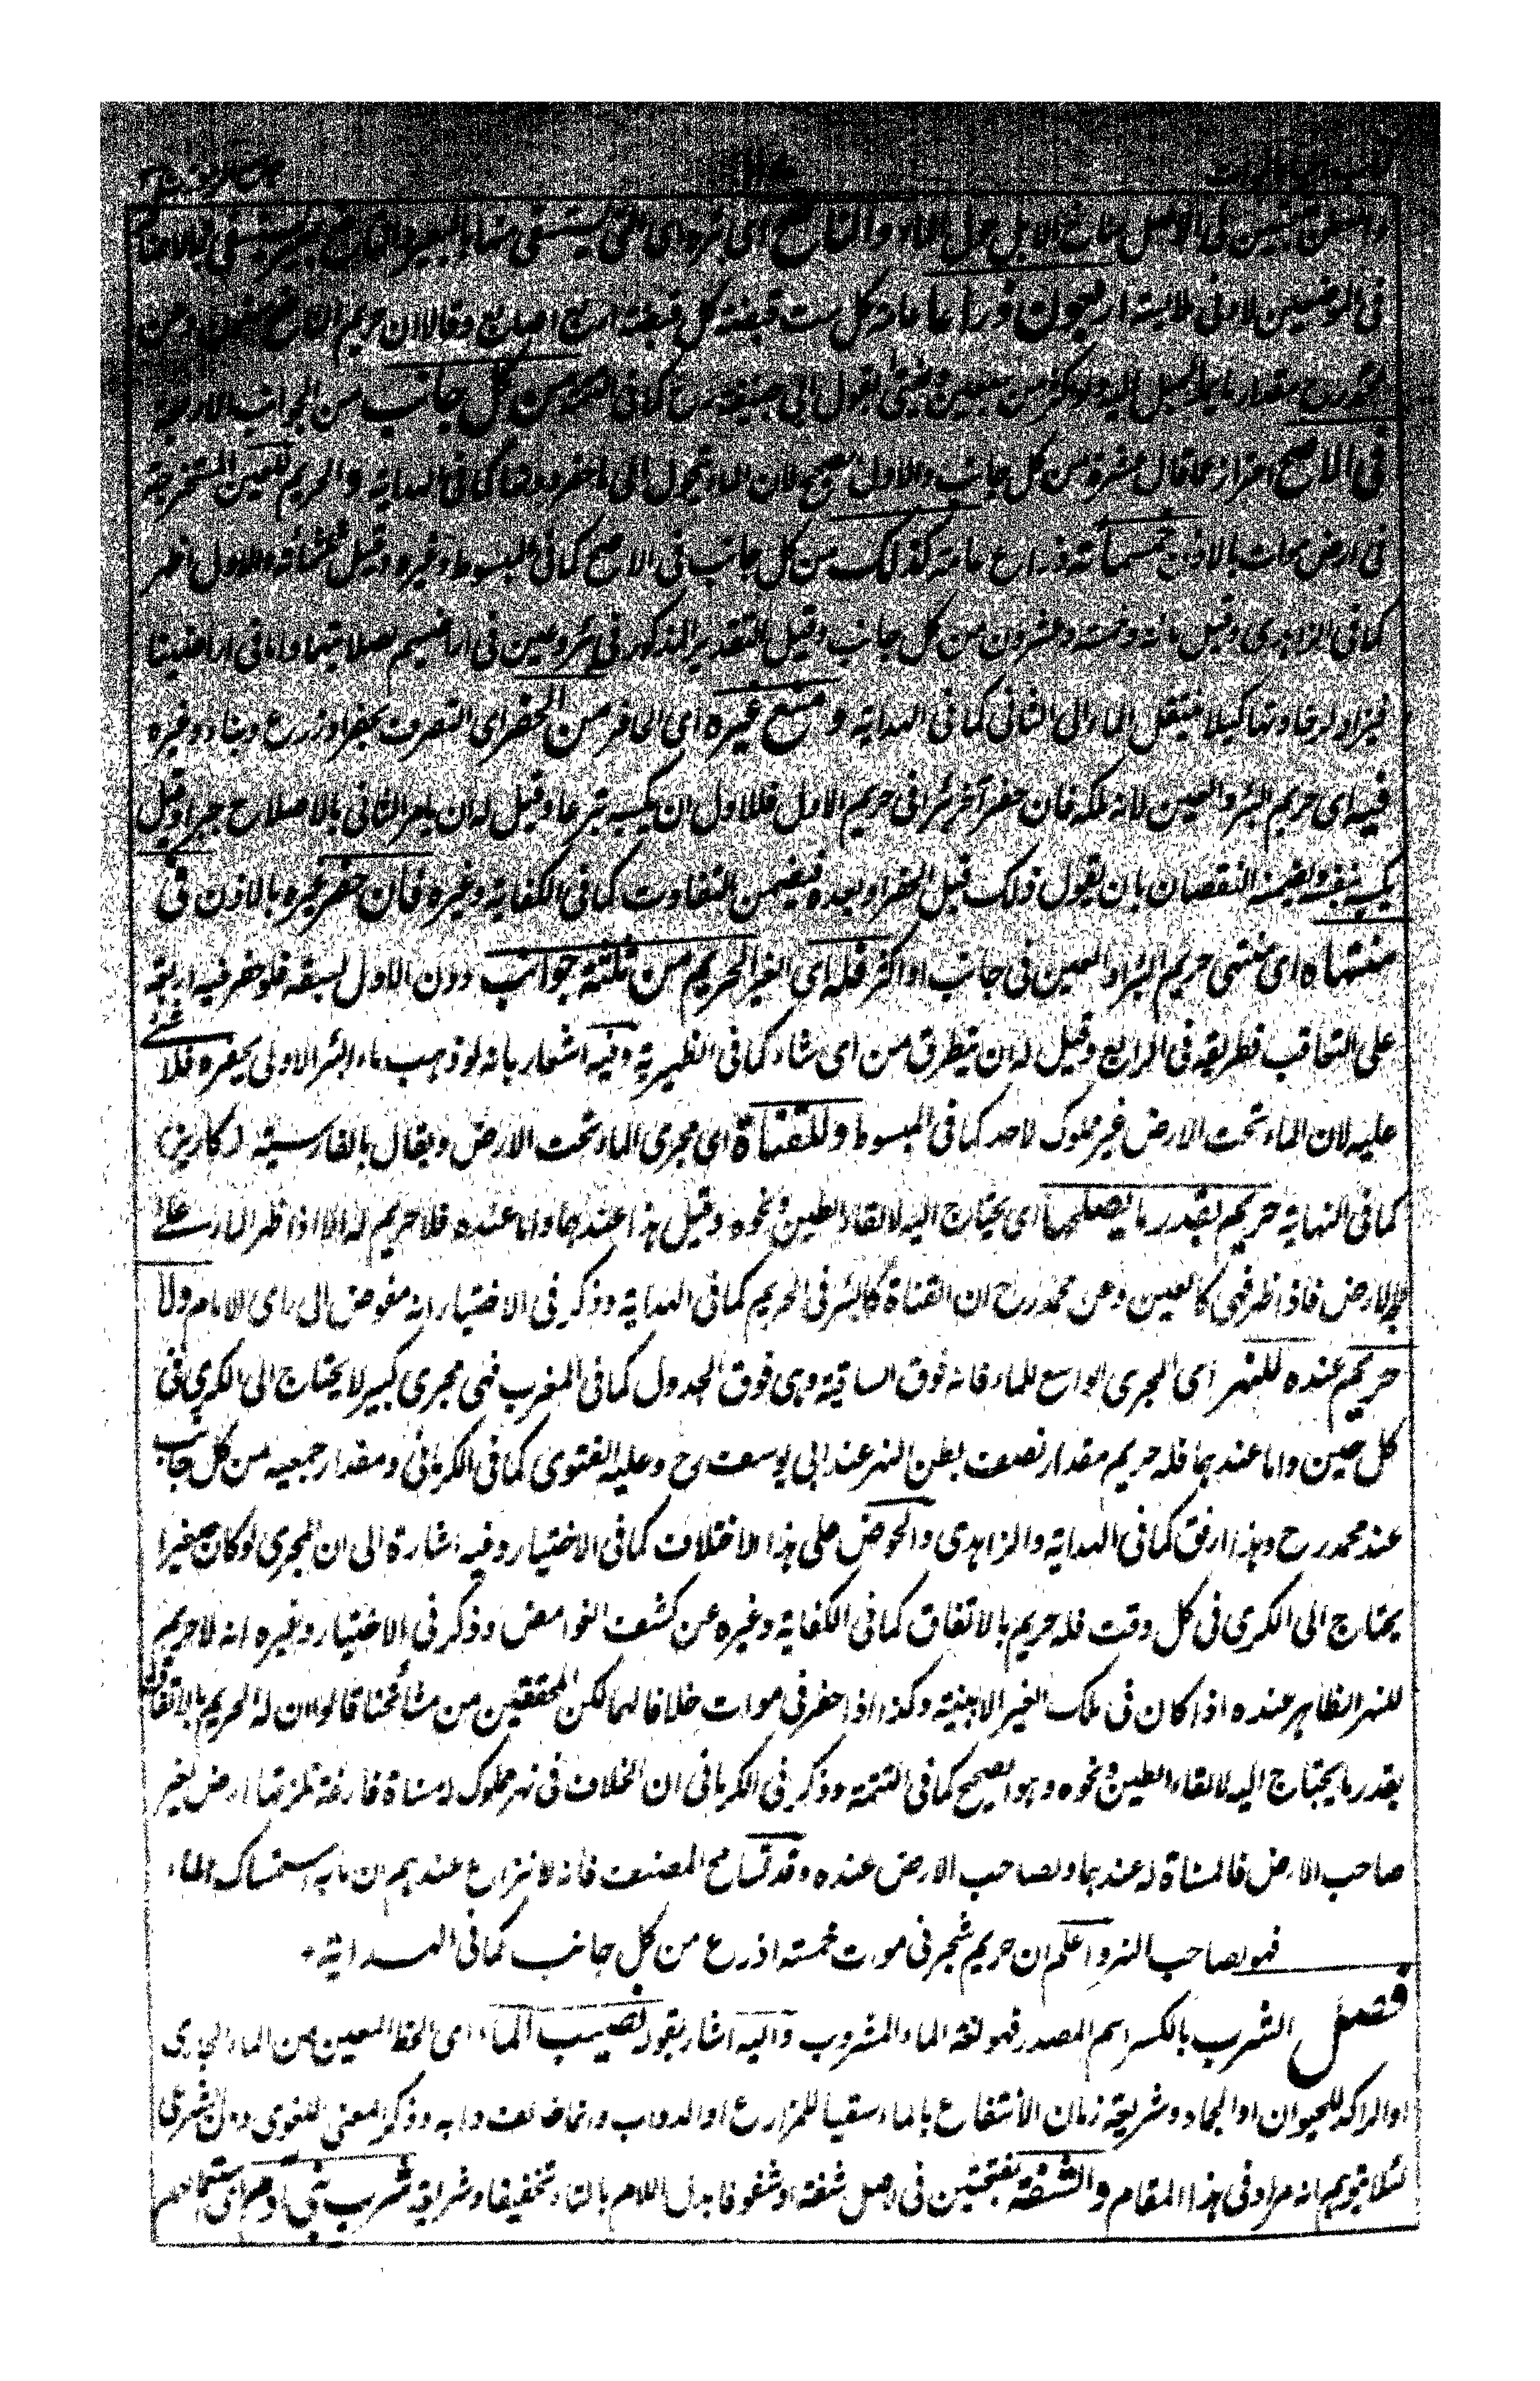 كتاب احياء الموات
والعطن بفتحتين فى الاصل مناخ الابل حول الماء والناضح اى بئره اى التى يستسقى منها بالبعير والناضح بعير يستسقى فالاضافة
فى الموضعين لادنى ملابسة اربعون ذراعا عامة كل ست قبضة كل قبضة اربع اصابع وقالا ان حريم الناضح ستون وعن
محمد رح مقدار ما الحبل اليه ولو اكثر من سبعين ويفتى بقول ابى حنيفة رح كما فى التتمة من كل جانب من الجوانب الاربعة
فى الاصح احتراز عما قال عشرة من كل جانب والاول صحيح لان الماء يتحول الى ما حفر دونها كما فى الهداية والحريم للعين المستخرجة
فى ارض موات بالاذن خمسمائة ذراع عامة كذلك من كل جانب فى الاصح كما فى المبسوط وغيره وقيل ثلثمائة والاول اظهر
كما فى الزاهدى وقيل مائة وخمسة وعشرون من كل جانب وقيل التقدير المذكور فى بئر وعين فى اراضيهم لصلابتها واما فى اراضينا
فيزاد لرخاوتها كيلا ينتقل الماء الى الثانى كما فى الهداية ومنع غيره اى الحافر من الحفر اى التصرف بحفر وزرع وبناء وغيره
فيه اى حريم البئر والعين لانه ملكه فان حفر آخر بئرا فى حريم الاول فللاول ان يكبسه تبرعا وقيل له ان يامر الثانى بالاصلاح جبرا وقيل
يكبسه بنفسه ويضمنه النقصان بان يقول ذلك قبل الحفر او بعده فيضمن التفاوت كما فى الكفاية وغيره فان حفر غيره بالاذن فى
منتهاه اى منتهى حريم البئر او العين فى جانب او اكثر فله اى الغير الحريم من ثلثة جوانب دون الاول لسبقه فلو حفر فيه اربعة
على التعاقب فطريقه فى الرابع وقيل له ان يتطرق من اى شاء كما فى الظهيرية وفيه اشعار بانه لو ذهب ماء البئر الاولى بحفره فلا شئ
عليه لان الماء تحت الارض غير مملوك لاحد كما فى المبسوط وللقناة اى مجرى الماء تحت الارض ويقال بالفارسية (كاريز)
كما فى النهاية حريم بقدر ما يصلحها اى يحتاج اليه لالقاء الطين ونحوه وقيل هذا عندهما واما عنده فلا حريم له الا اذا ظهر الماء على
الارض فاذا ظهر فهى كالعين وعن محمد رح ان القناة كالبئر فى الحريم كما فى الهداية وذكر فى الاختيار انه مفوض الى راى الامام ولا
حريم عنده للنهر اى المجرى الواسع للماء فانه فوق الساقية وهى فوق الجدول كما فى المغرب فهى مجرى كبير لا يحتاج الى الكرى فى
كل حين واما عندهما فله حريم مقدار نصف بطن النهر عند ابى يوسف رح وعليه الفتوى كما فى الكرمانى ومقدار جميعه من كل جانب
عند محمد رح وهذا ارفق كما فى الهداية والزاهدى والحوض على هذا الاختلاف كما فى الاختيار وفيه اشارة الى ان المجرى لو كان صغيرا
يحتاج الى الكرى فى كل وقت فله حريم بالاتفاق كما فى الكفاية وغيره عن كشف الغوامض وذكر فى الاختيار وغيره انه لا حريم
للنهر الظاهر عنده اذا كان فى ملك الغير الا ببينة وكذا اذا حفر فى موات خلافا لهما لكن المحققين من مشائخنا قالوا ان له الحريم بالاتفاق
بقدر ما يحتاج اليه لالقاء الطين ونحوه وهو الصحيح كما فى التتمة وذكر فى الكرمانى ان الخلاف فى نهر مملوك له مسناة فارغة تلزقها ارض لغير
صاحب الارض فالمسناة له عندهما ولصاحب الارض عنده وقد تسامح المصنف فانه لا نزاع عندهم ان ما به استمساك الماء
فهو لصاحب النهر واعلم ان حريم شجر فى موات خمسة اذرع من كل جانب كما فى الهداية
فصل الشرب بالكسر اسم المصدر فهو لغة الماء المشروب واليه اشار بقوله نصيب الماء اى الحظ المعين من الماء الجارى
او الراكد للحيوان او الجماد وشريعة زمان الانتفاع بالماء سقيا للمزارع او الدواب وانما خالف دابه وذكر المعنى اللغوى دون الشرعى
لئلا يتوهم انه مراد فى هذا المقام والشفة بفتحتين فى الاصل شفة او شفو فابدل اللام بالتاء تخفيفا وشريعة شرب بنى آدم اى استعمالهم